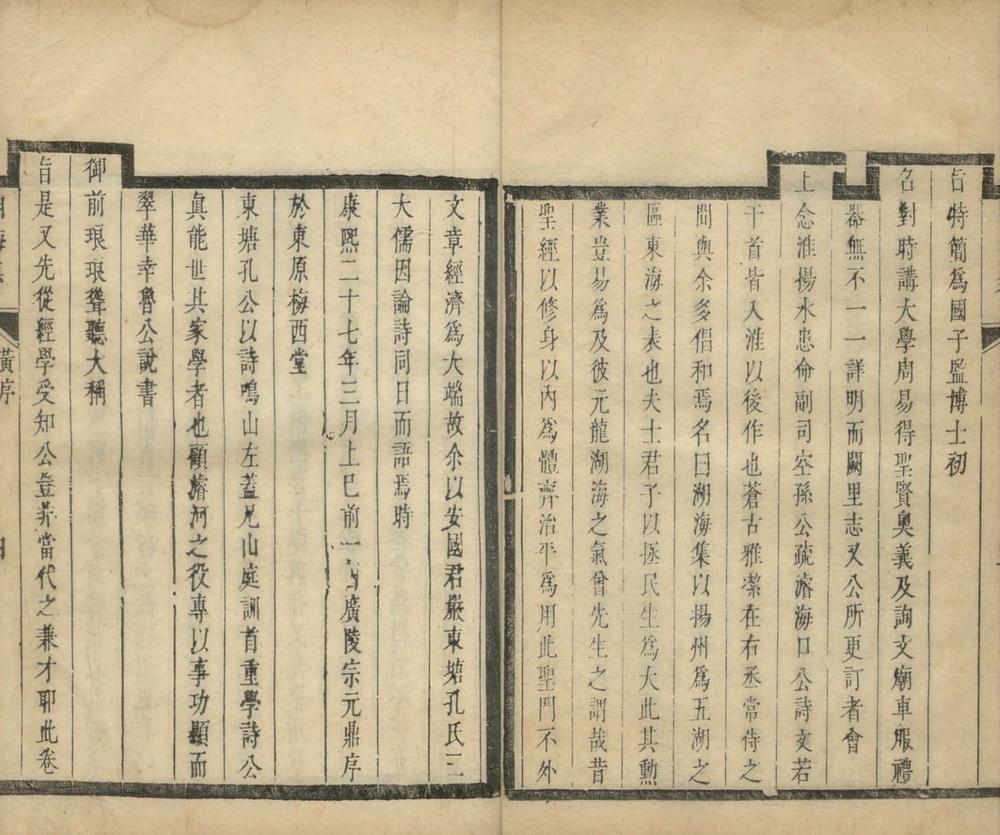 旨特簡爲國子監博士初
名對時講大學周易得聖賢奥義及詢文廟車服禮
器無不一一詳明而闕里志又公所更訂者會
上念淮揚水患命副司空孫公疏濬海口公詩文若
干首皆入淮以後作也蒼古雅潔在右丞常侍之
間與余多倡和焉名曰湖海集以揚州爲五湖之
區東海之表也夫士君子以拯民生爲大此其勲
業豈易爲及彼元龍湖海之氣曾先生之謂哉昔
聖經以修身以內爲體齊治平爲用此聖門不外
文章經濟爲大端故余以安國君嚴東塘孔氏三
大儒因論詩同日而語焉時
康熙二十七年三月上巳前一日廣陵宗元鼎序
於東原梅西堂
東塘孔公以詩鳴山左蓋尼山庭訓首重學詩公
眞能世其家學者也顧濬河之役專以事功顯而
翠華幸魯公說書
御前琅琅聳聽大稱
旨是又先從經學受知公豈非當代之兼才耶此卷
黃序